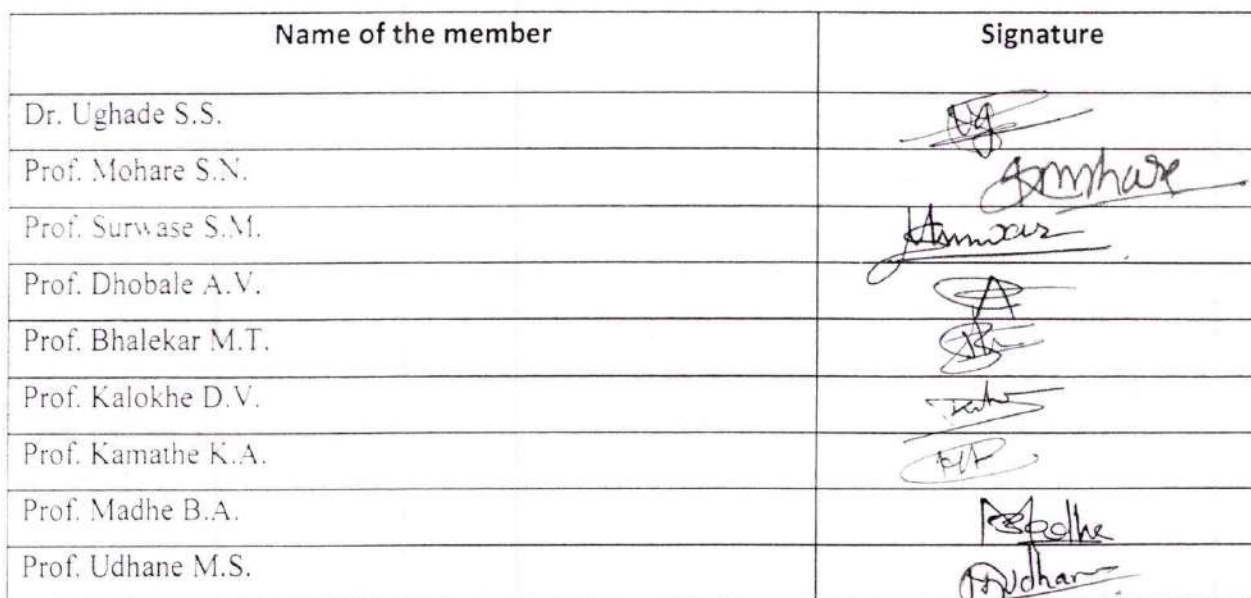 Name of the member Signature
Dr. Ughade S.S.
Prof. Mohare S.N.
Prof. Surwase S.M.
Prof. Dhobale A.V.
Prof. Bhalekar M.T.
Prof. Kalokhe D.V.
Prof. Kamathe K.A.
Prof. Madhe B.A.
Prof. Udhane M.S.